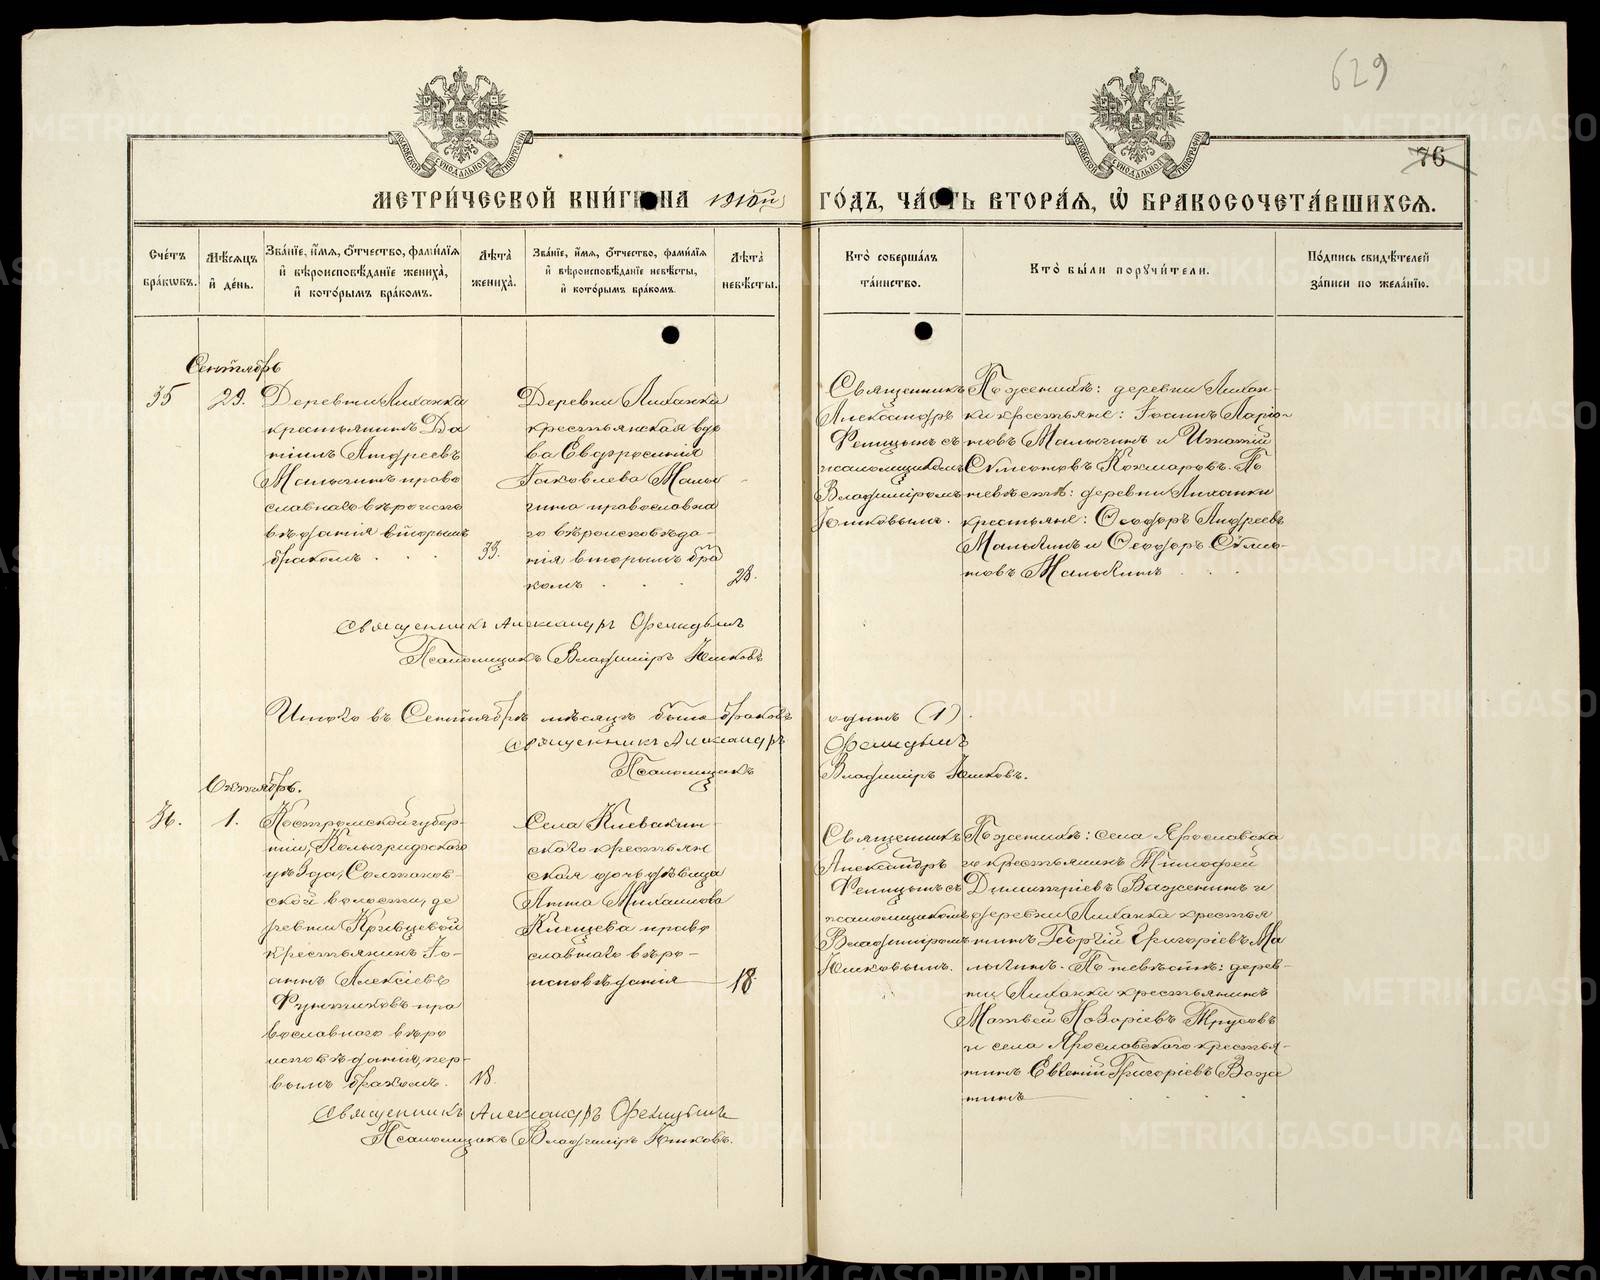 629
76
МОСКОВСКОЙ СѴНОДАЛЬНОЙ ТИПОГРАФІИ
МОСКОВСКОЙ СѴНОДАЛЬНОЙ ТИПОГРАФІИ
МЕТРИ́ЧЕСКОЙ КНИ́ГИ НА 1910й ГО́ДЪ, ЧА́СТЬ ВТОРА́Ѧ, Ѡ҆ БРАКОСОЧЕТА́ВШИХСѦ.
Сче́тъ бра́кѡвъ.
Мѣ́сѧцъ и҆ де́нь.
Зва́нїе, и҆́мѧ, ѻ҆́тчество, фамилїѧ и҆ вѣроисповѣ́данїе жениха̀, и҆ кото́рымъ бра́комъ.
Лѣта̀ жениха̀.
Зва́нїе, и҆́мѧ, ѻ҆́тчество, фамилїѧ и҆ вѣроисповѣ́данїе невѣ́сты, и҆ кото́рымъ бра́комъ.
Лѣта̀ невѣ́сты.
Кто̀ соверша́лъ та́инство.
Кто̀ бы́ли порꙋчи́тели.
По́дпись свидѣ́телей за́писи по жела́нїю.
Сентябрь
35
29.
Деревни Лиханки
крестьянинъ Да
нiилъ Андреевъ
Малыгинъ право
славнаго вѣроиспо
вѣданія вторымъ
бракомъ
33.
Деревни Лиханки
крестьянская вдо
ва Евфросинія
Іаковлева Малы
гина православна
го вѣроисповѣда-
нія вторымъ бра
комъ
28.
Священникъ
Александръ
Феницынъ съ
псаломщикомъ
Владиміромъ
Юшковымъ.
По женихѣ: деревни Лихан-
ки крестьяне: Іоаннъ Ларіо-
новъ Малыгинъ и Игнатій
Сѵмеоновъ Кокшаровъ. По
невѣстѣ: деревни Лиханки
крестьяне: Ѳеодоръ Андреевъ
Малыгинъ и Ѳеодоръ Сѵмео-
новъ Малыгинъ
Священникъ Александръ Феницынъ
Псаломщикъ Владиміръ Юшковъ
Итого въ Сентябрѣ мѣсяцѣ было браковъ одинъ (1).
Священникъ Александръ Феницынъ
Псаломщикъ Владиміръ Юшковъ.
Октябрь.
36.
1.
Костромской губер-
ніи, Кологривскаго
уѣзда, Солтанов-
ской волости, де
ревни Кривцевой
крестьянинъ Іо-
аннъ Алексіевъ
Фунтиковъ пра
вославнаго вѣро
исповѣданія, пер-
вымъ бракомъ.
18.
Села Клевакин-
скаго крестьян
ская дочь дѣвица
Анна Михаилова
Клещева право
славнаго вѣро-
исповѣданія
18.
Священникъ
Александръ
Феницынъ съ
псаломщикомъ
Владиміромъ
Юшковымъ.
По женихѣ: села Ярославска
го крестьянинъ Тимофей
Димитріевъ Важенинъ и
деревни Лиханки крестья
нинъ Георгій Григоріевъ Ма
лыгинъ. По невѣстѣ: дерев-
ни Лиханки крестьянинъ
Матвей Назаріевъ Трусовъ
и села Ярославскаго крестья-
нинъ Евгеній Григоріевъ Важе
нинъ
Священникъ Александръ Феницынъ
Псаломщикъ Владиміръ Юшковъ.
METRIKI.GASO-URAL.RU